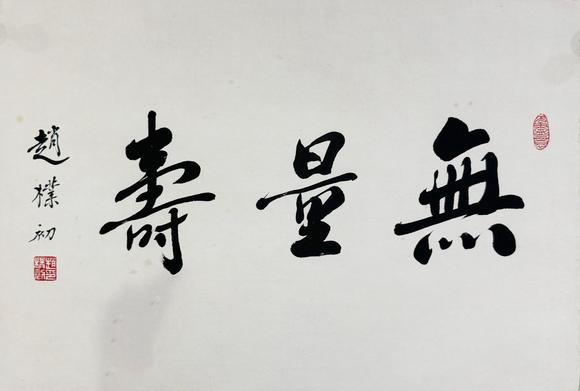 無量壽
趙樸初